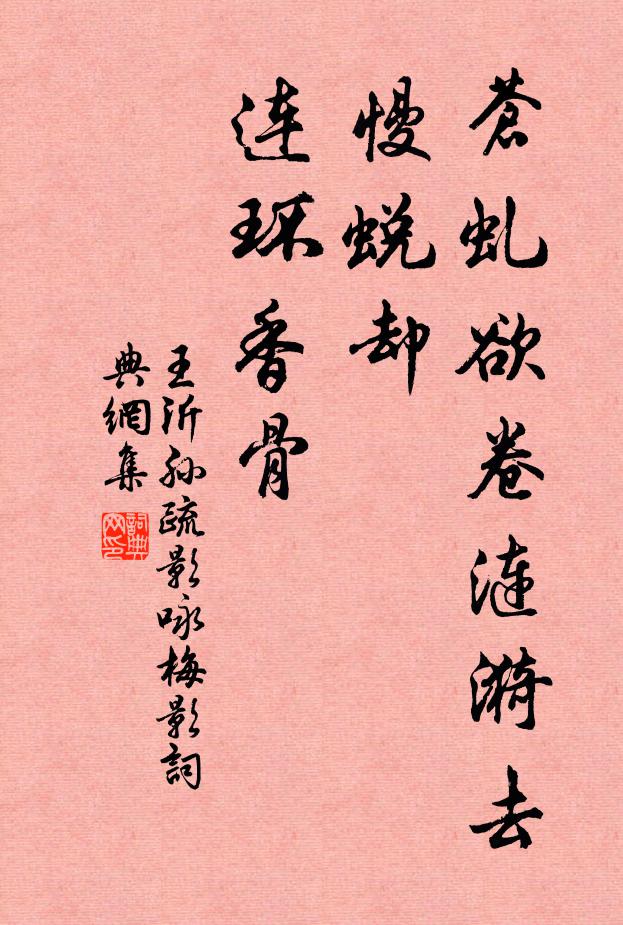 蒼虬欲卷漣漪去
慢蜕却
連環香骨
王沂孙疏影咏梅影詞
典網集
詞典
网印